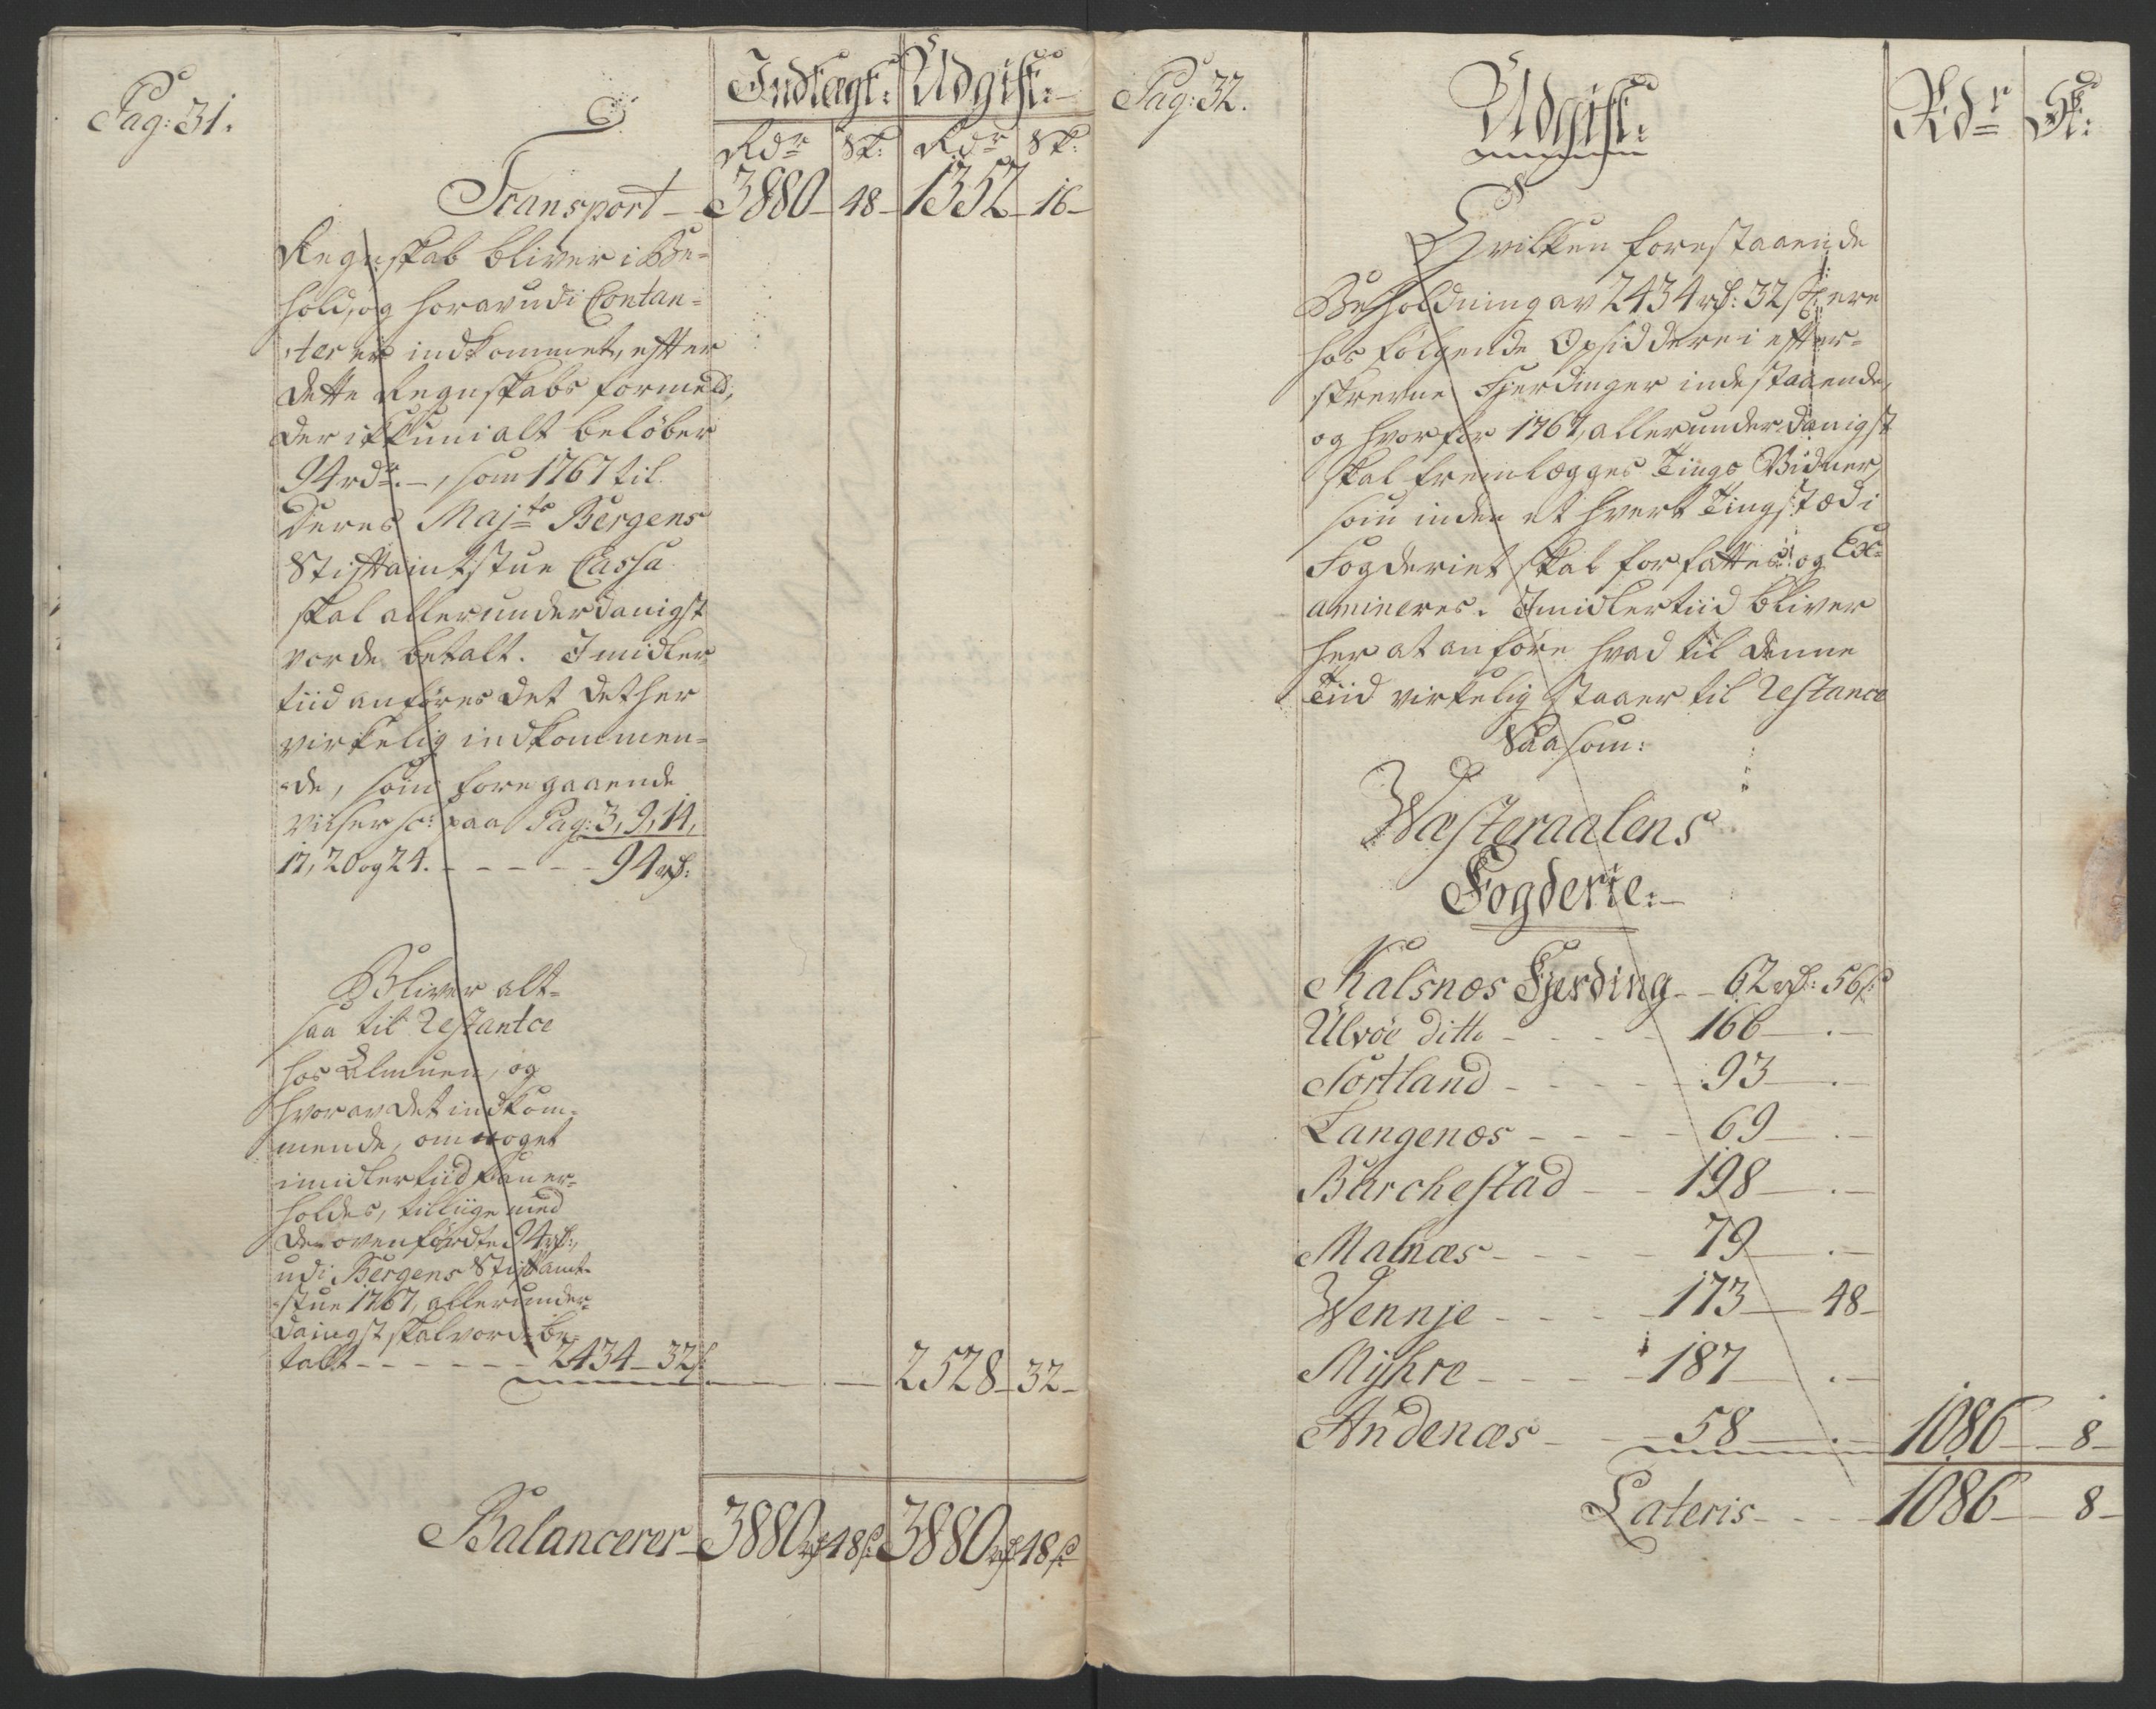 Pag: 31.
Indtægt: Udgift:
Rdr Sk: Rdr Sk:
Transport 3880 48 1352 16
Regnskab bliver i Be-
hold, og horav udi Contan-
ter er indkommet, efter
dette Regnskabs formeld,
der ikkuni alt beløber
94 rdr. , som 1767 til
Deres Majts Bergens
Stiftamtstue Cassa
skal allerunderdanigst
vorde betalt. Imidler
tiid anføres det det her
virkelig indkommen-
de, som foregaaende
viiser sc: paa Pag: 3, 9, 14,
17, 20 og 24. - - - - - - 94 rd:
Bliver alt-
saa til Restantce
hos Almuen, og
hvorav det indkom-
mende, om noget
imidlertiid kan er-
holdes, tilliige med
de ovenførdte 94 rd:,
udi Bergens Stiftamt-
stue 1767, allerunder-
danigst skal vorde be-
talt - - - - - - 2434 - 32 s: 2528 - 32 -
Balancerer 3880 rd 48 s: 3880 rd 48 s
Pag: 32.
Udgift: Rdr Sk:
Hvilken forestaaende
Beholdning av 2434 rd: 32 s: ere
hos følgende Opsiddere i efter-
skrevne Fjerdinger indestaaende,
og hvorfor 1767, allerunderdanigst
skal fremlægges Tings Vidner,
som inden et hvert Tingstæd i
Fogderiet skal forfattes og Ex-
amineres. Imidlertiid bliver
her at anføre hvad til denne
Tiid virkelig staaer til Restance
Saasom:
Wæsteraalens
Fogderie:
Kalsnæs Fjerding - - 62 rd: 56 s:
Ulvøe ditto - - - - 166 - . -
Sortland - - - - - 93 - . -
Langenæs - - - - - 69 - . -
Barchestad - - 198 - . -
Malnæs - - - - - 79 - . -
Wennje - - - - 173 - 48 -
Myhre - - - - 187 - . -
Andenæs - - - 58 - . - 1086 - 8 -
Lateris - - - - 1086 - 8 -